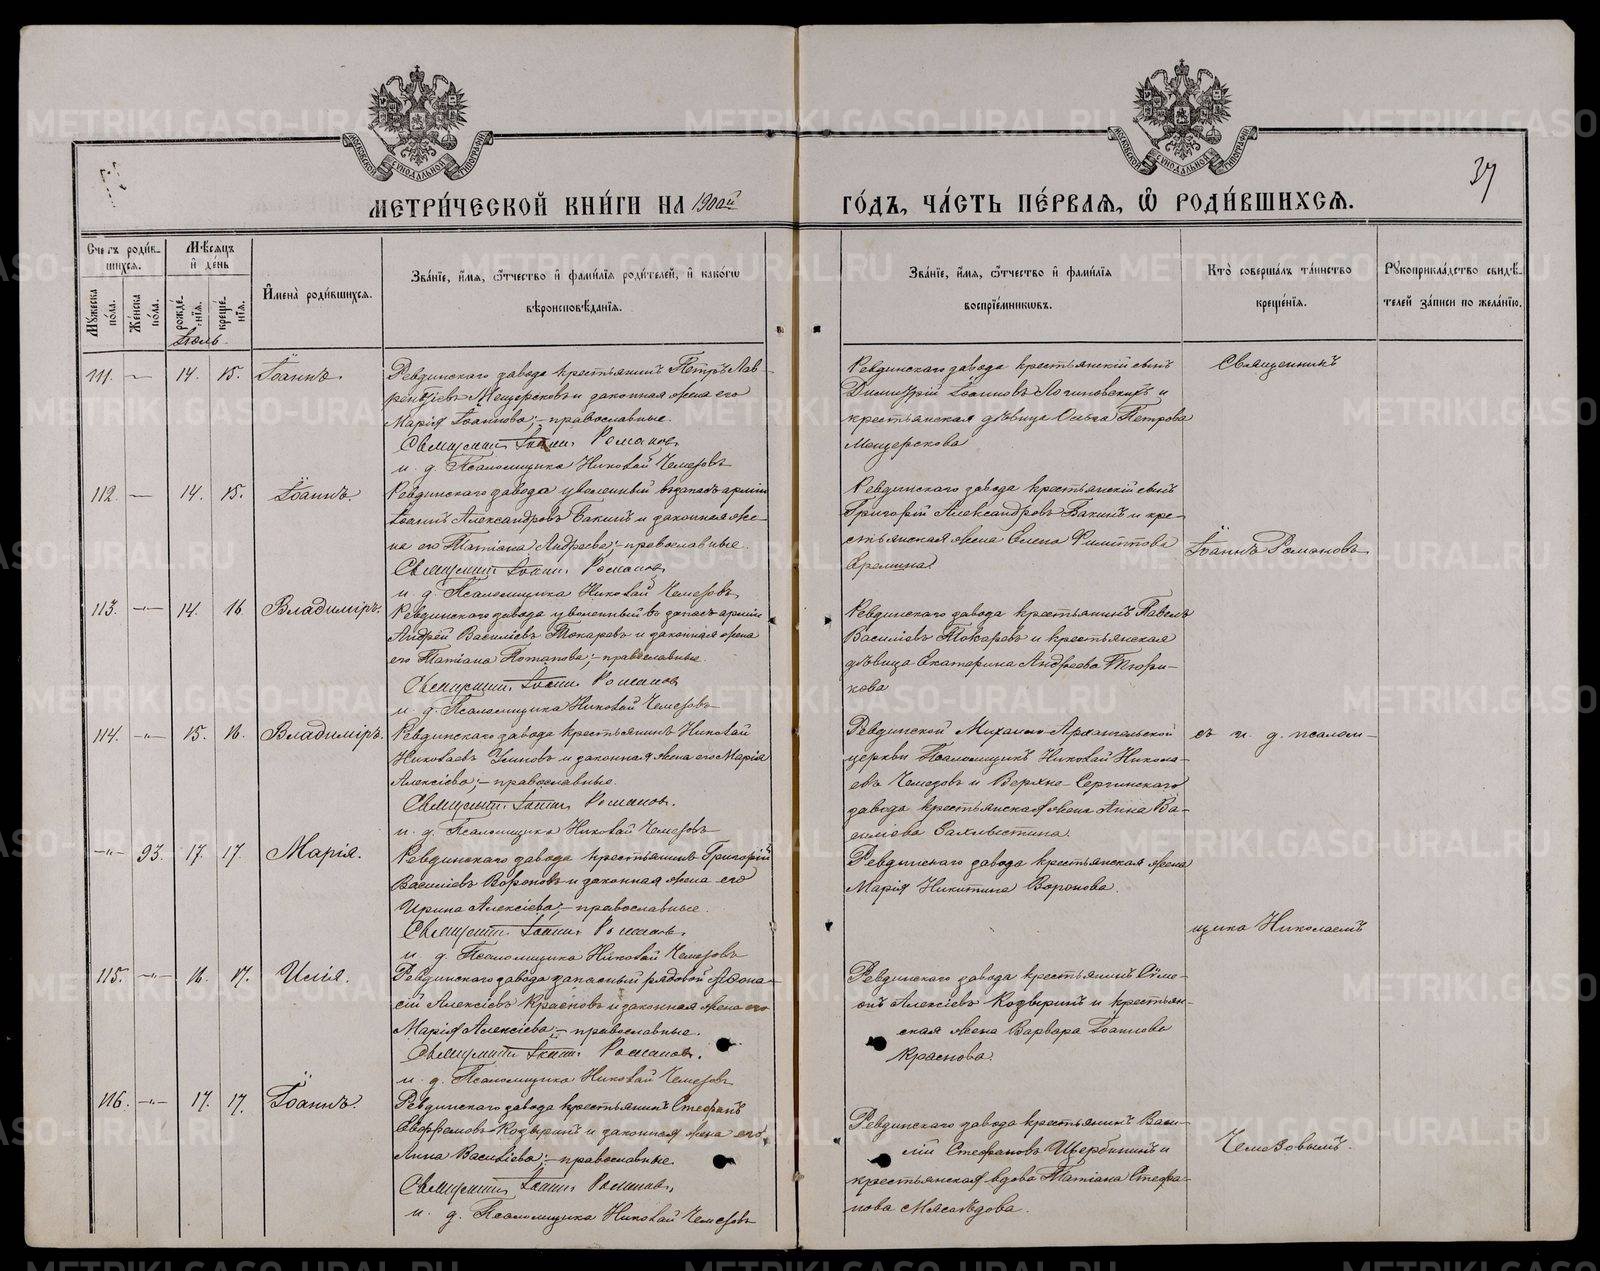 МЕТРИ́ЧЕСКОЙ КНИ́ГИ НА 1900й ГО́ДЪ, ЧА́СТЬ ПЕ́РВАЯ, Ѽ РОДИ́ВШИХСЯ.
37
МОСКОВСКОЙ СУНОДАЛЬНОЙ ТИПОГРАФІИ
МОСКОВСКОЙ СУНОДАЛЬНОЙ ТИПОГРАФІИ
Счетъ роди́в-
шихся.
Мѣсяцъ
и҆ де́нь
Му́жеска
по́ла.
Же́нска
по́ла.
рожде́-
нія.
креще́-
нія.
И҆мена̀ роди́вшихся.
Зва́ніе, и҆́мя, ѻ҆́тчество и҆ фами́лія роди́телей, и҆ како́гѡ
вѣроисповѣ́данія.
Зва́ніе, и҆́мя, ѻ҆́тчество и҆ фами́лія
воспріе́мниковъ.
Кто̀ соверша́лъ та́инство
креще́нія.
Рꙋкоприкла́дство свидѣ́-
телей за́писи по жела́нію.
Іюль
111. — 14. 15. Іоаннъ.
Ревдинскаго завода крестьянинъ Петръ Лав-
рентіевъ Мещерсковъ и законная жена его
Марія Іоаннова; - православные.
Священникъ Іоаннъ Романовъ
и. д. Псаломщика Николай Чемезовъ
Ревдинскаго завода крестьянскій сынъ
Димитрій Іоанновъ Логиновскихъ и
крестьянская дѣвица Ольга Петрова
Мещерскова
Священникъ
112. — 14. 15. Іоаннъ.
Ревдинскаго завода уволенный въ запасъ арміи
Іоаннъ Александровъ Бакинъ и законная же-
на его Татіана Андреева; - православные.
Священникъ Іоаннъ Романовъ
и. д. Псаломщика Николай Чемезовъ
Ревдинскаго завода крестьянскій сынъ
Григорій Александровъ Бакинъ и кре-
стьянская жена Елена Филиппова
Еремина
Іоаннъ Романовъ
113. —„— 14. 16 Владиміръ.
Ревдинскаго завода уволенный въ запасъ арміи
Андрей Василіевъ Токаревъ и законная жена
его Татіана Потапова; - православные.
Священникъ Іоаннъ Романовъ
и. д. Псаломщика Николай Чемезовъ
Ревдинскаго завода крестьянинъ Павелъ
Василіевъ Токаревъ и крестьянская
дѣвица Екатерина Андреева Тюри-
кова
114. —„— 15. 16. Владиміръ.
Ревдинскаго завода крестьянинъ Николай
Николаевъ Умновъ и законная жена его Марія
Алексіева; - православные.
Священникъ Іоаннъ Романовъ.
и. д. Псаломщика Николай Чемезовъ
Ревдинской Михаило-Архангельской
церкви Псаломщикъ Николай Никола-
евъ Чемезовъ и Верхне-Сергинскаго
завода крестьянская жена Анна Ва-
силіева
съ и. д. псалом-
—„— 93. 17. 17. Марія.
Ревдинскаго завода крестьянинъ Григорій
Василіевъ Вороновъ и законная жена его
Ирина Алексіева; - православные.
Священникъ Іоаннъ Романовъ.
и. д. Псаломщика Николай Чемезовъ
Ревдинскаго завода крестьянская жена
Марія Никитина Воронова.
щика Николаемъ
115. —„— 16. 17. Илія.
Ревдинскаго завода запасный рядовой Афона-
сій Алексіевъ Красновъ и законная жена его
Марія Алексіева; - православные.
Священникъ Іоаннъ Романовъ.
и. д. Псаломщика Николай Чемезовъ
Ревдинскаго завода крестьянинъ Сѵме-
онъ Алексіевъ Козыринъ и крестьян-
ская жена Варвара Іоаннова
Краснова.
116. —„— 17. 17. Іоаннъ.
Ревдинскаго завода крестьянинъ Стефанъ
Евфремовъ Козыринъ и законная жена его
Анна Василіева; - православные
Священникъ Іоаннъ Романовъ,
и. д. Псаломщика Николай Чемезовъ
Ревдинскаго завода крестьянинъ Васи-
лій Стефановъ Щербининъ и
крестьянская вдова Татіана Стефа-
нова Мясоѣдова.
Чемезовымъ.